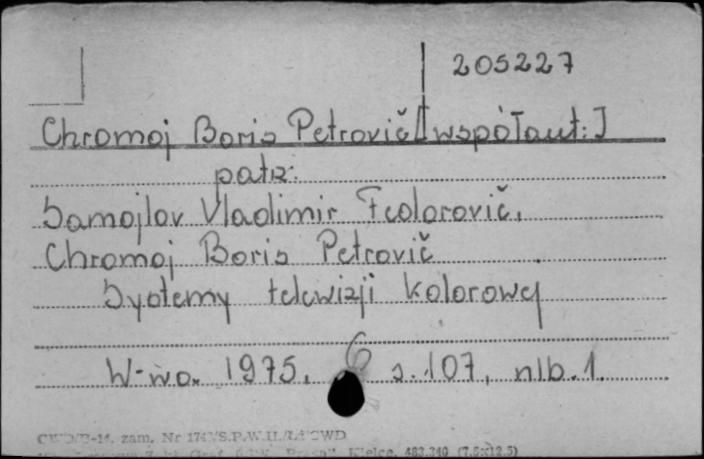 205227
Chromoj Boris Petrovič [współaut:]
patrz:
Samojlov Vladimir Fedorovič,
Chromoj Boris Petrovič
Systemy telewizji kolorowej
W-wa. 1975. 6 s. 107, nlb. 1.
-14. zam. Nr
Kielce, 483.340 (7,5x12,5)